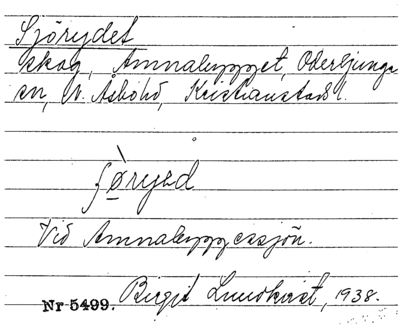 Sjörydet
skog, Amnabygget, Oderljunga
sn, N. Åsbohd, Kristianstads l.
ʃø̀ryəd
Vid Amnabyggessjön.
Nr 5499. Birgit Lundkvist, 1938.